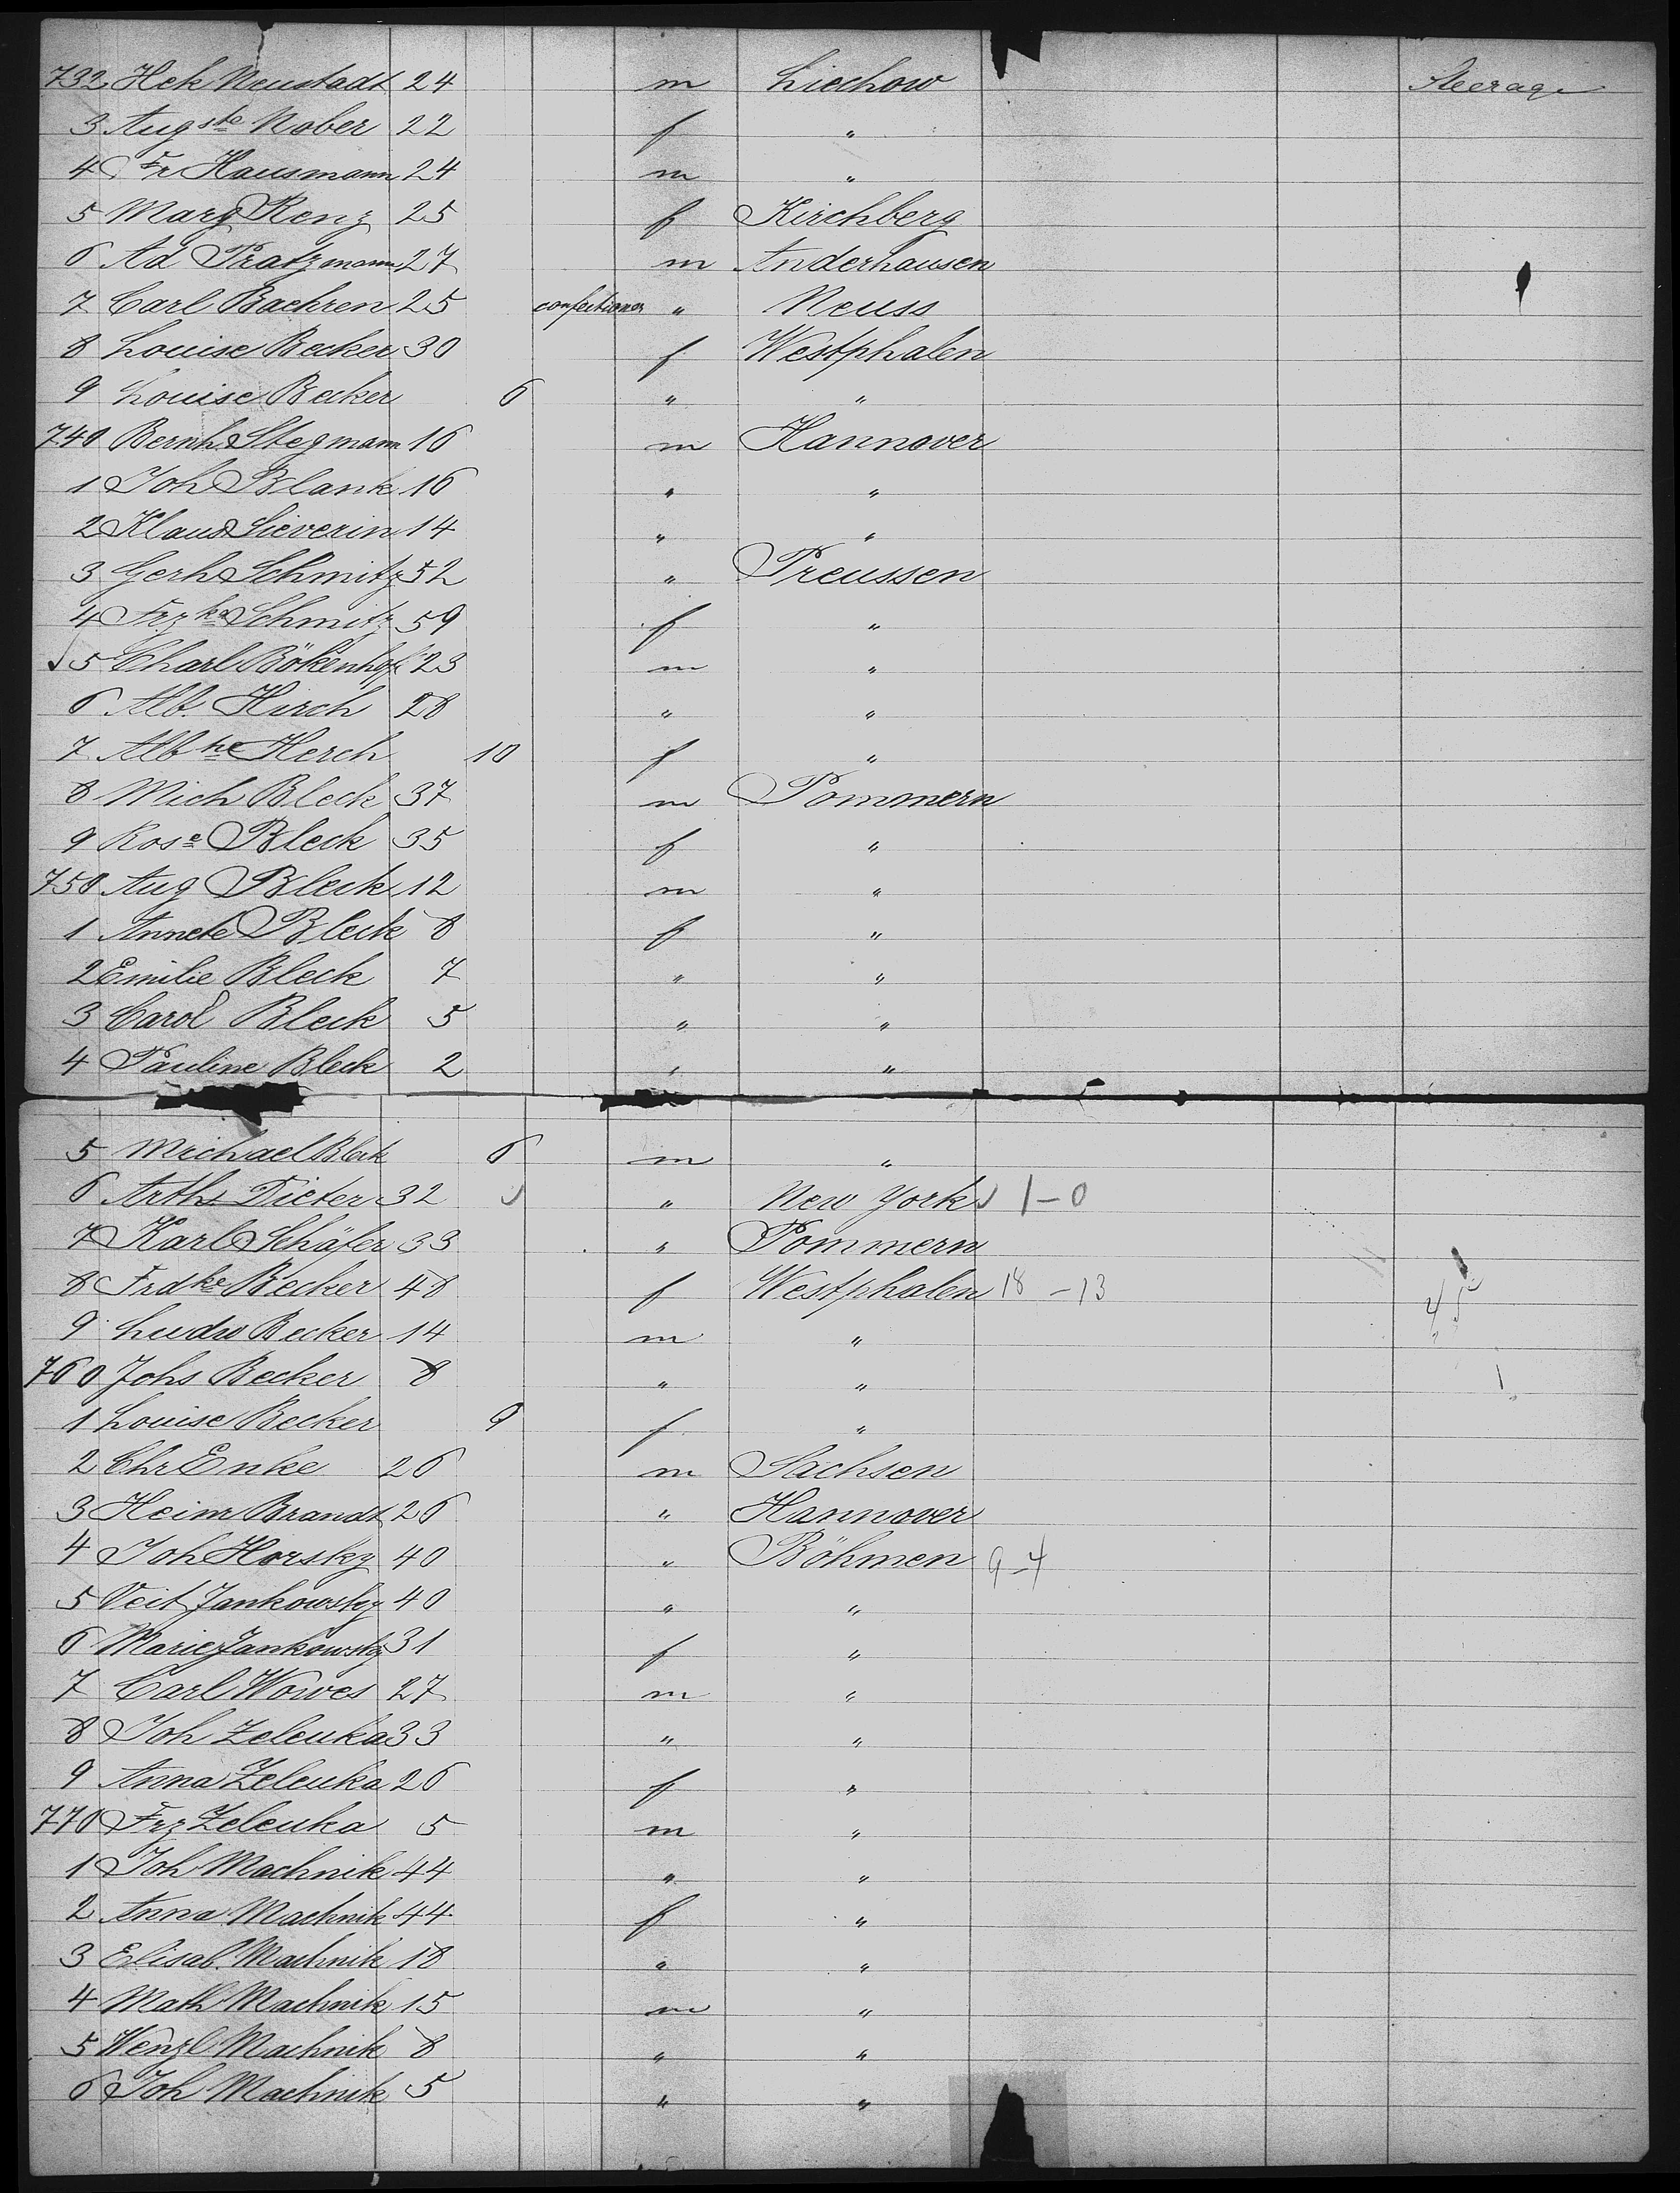 732 Hek Neustadt 24 m Liechow Steerage
3 Aug ste Nober 22 f "
4 Fr Hausmann 24 m "
5 Marg Renz 25 f Kirchberg
6 Ad Pratzmann 27 m Anderhausen
7 Carl Baehren 25 confectioner " Neuss
8 Louise Becker 30 f Westphalen
9 Louise Becker 6 " "
740 Bernh. Stegmann 16 m Hannover
1 Joh Blank 16 " "
2 Klaus Sieverin 14 " "
3 Gerh Schmitz 52 " Preussen
4 Frz ka Schmitz 59 f "
5 Charl Bökenhoff 23 m "
6 Alb. Hirch 28 " "
7 Alb ne Herch 10 f "
8 Mich Bleck 37 m Pommern
9 Ros e Bleck 35 f "
750 Aug Bleck 12 m "
1 Annete Bleck 8 f "
2 Emilie Bleck 7 " "
3 Carol Bleck 5 " "
4 Pauline Bleck 2 " "
5 Michael Bleck 6 m "
6 Arth. Dieter 32 " New York 1-0
7 Karl Schäfer 33 " Pommern
8 Frd ke Becker 48 f Westphalen 18-13
9 Ludw Becker 14 m "
760 Johs Becker 8 " "
1 Louise Becker 9 f "
2 Chr Enke 26 m Sachsen
3 Heinr Brandt 26 " Hannover
4 Joh Horsky 40 " Böhmen 9-4
5 Veit Jankowsky 40 " "
6 Marie Jankowsky 31 f "
7 Carl Wowes 27 m "
8 Joh Zeleuka 33 " "
9 Anna Zeleuka 26 f "
770 Frz Zeleuka 5 m "
1 Joh Machnik 44 " "
2 Anna Machnik 44 f "
3 Elisab. Machnik 18 " "
4 Math Machnik 15 m "
5 Wenzl Machnik 8 " "
6 Joh Machnik 5 " "